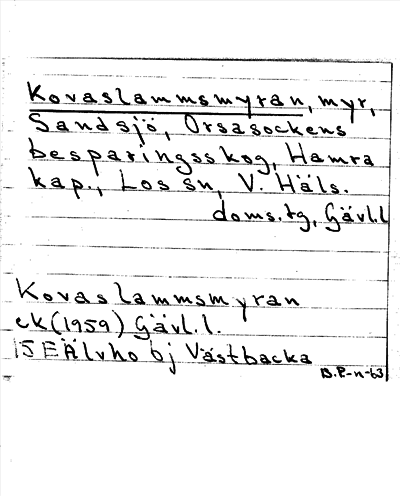 Kovaslammsmyran, myr,
Sandsjö, Orsasockens
besparingsskog, Hamra
kap., Los sn, V. Häls.
doms.tg, Gävl.l
Kovaslammsmyran
ek(1959) Gävl.l.
15E Älvho bj Västbacka
B.P-n-63